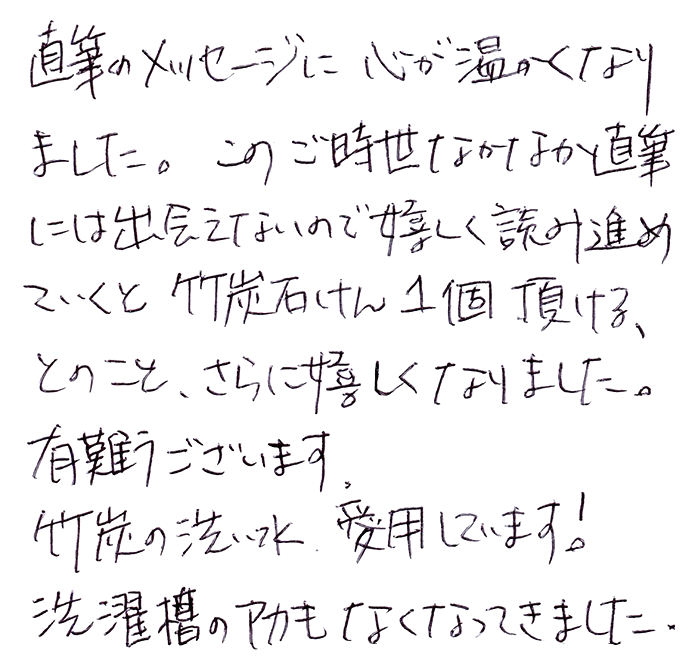 直筆のメッセージに 心が温かくなり
ました。 このご時世なかなか直筆
には出会えないので嬉しく読み進め
ていくと 竹炭石けん1個 頂ける、
とのこと、さらに嬉しくなりました。
有難うございます。
竹炭の洗い水 愛用しています!
洗濯槽のアカも なくなってきました.